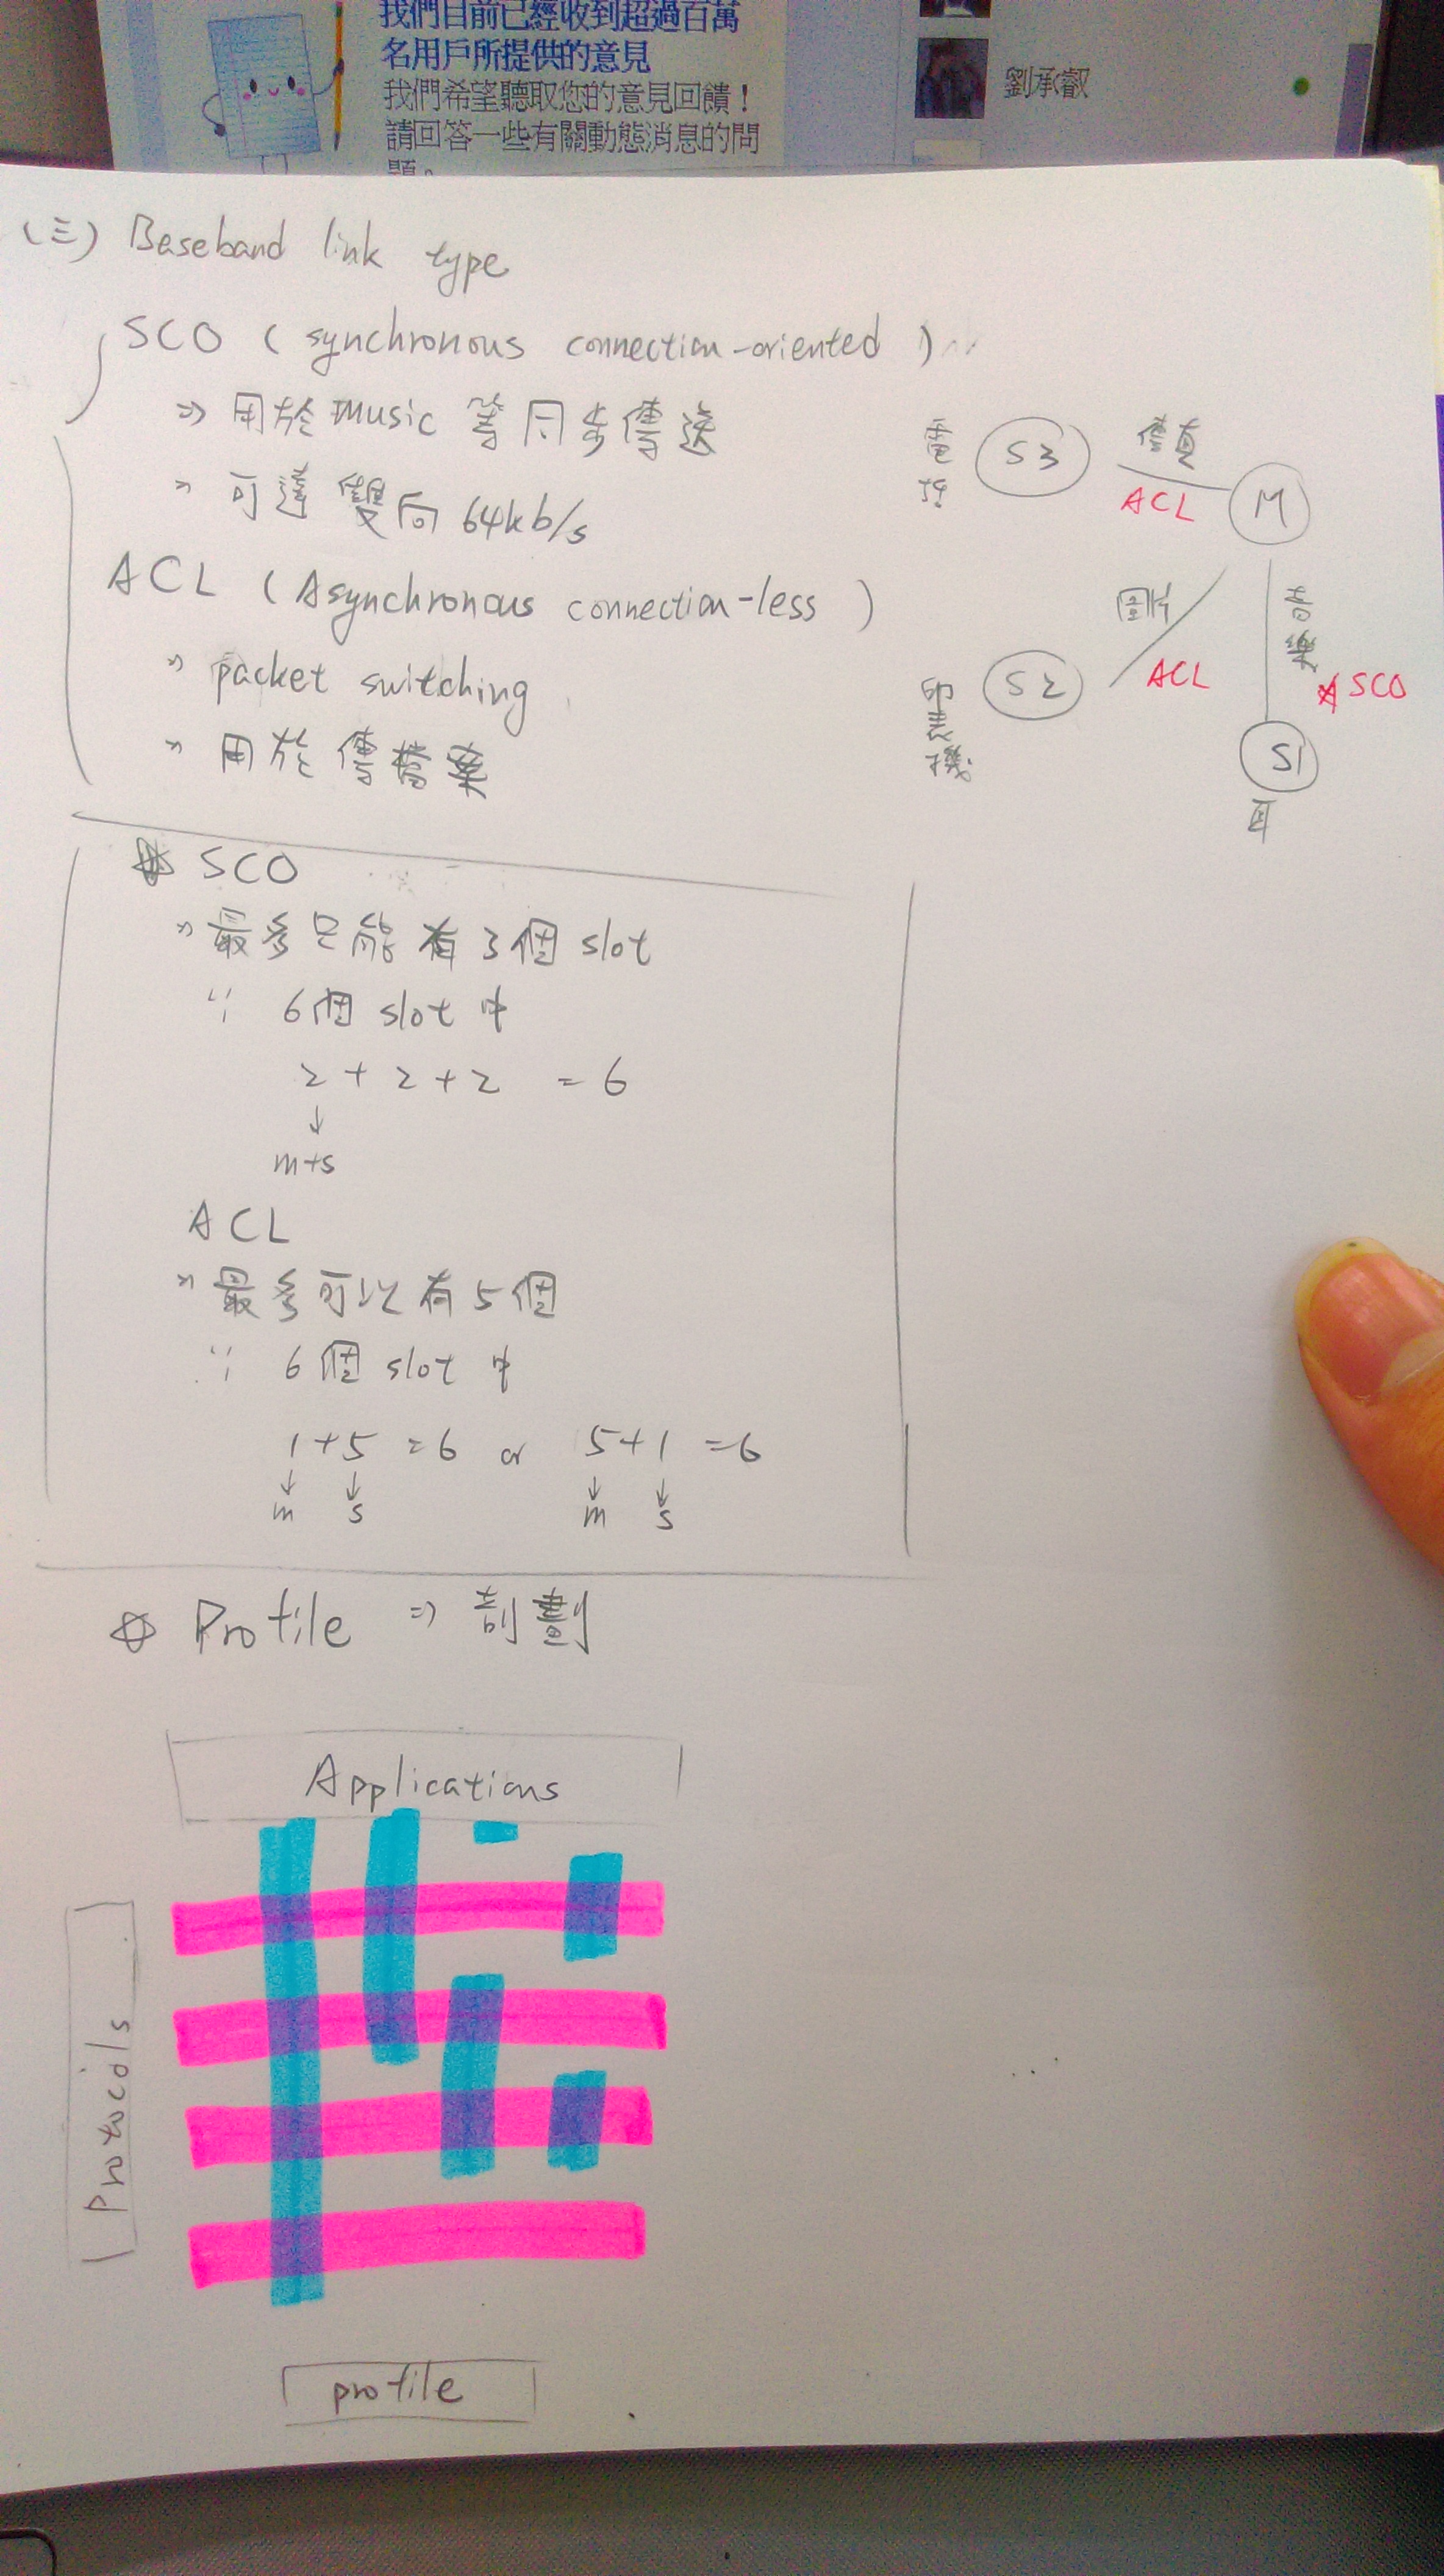 我們目前已經收到超過百萬
名用戶所提供的意見
我們希望聽取您的意見回饋！
請回答一些有關動態消息的問
題。
劉承叡
(三) Baseband link type
SCO ( synchronous connection-oriented )
=> 用於music 等同步傳送
" 可達 雙向 64kb/s
ACL ( Asynchronous connection-less )
" packet switching
" 用於 傳檔案
電
S3
傳真
ACL
M
圖片
ACL
音樂
SCO
印表機
S2
S1
耳
☆ SCO
" 最多只能有3個 slot
∵ 6個 slot 中
2 + 2 + 2 = 6
↓
m+s
ACL
" 最多可以有5個
∵ 6個 slot 中
1+5 =6 or 5+1 =6
↓ ↓ ↓ ↓
m s m s
☆ Profile =>
Applications
Protocols
profile